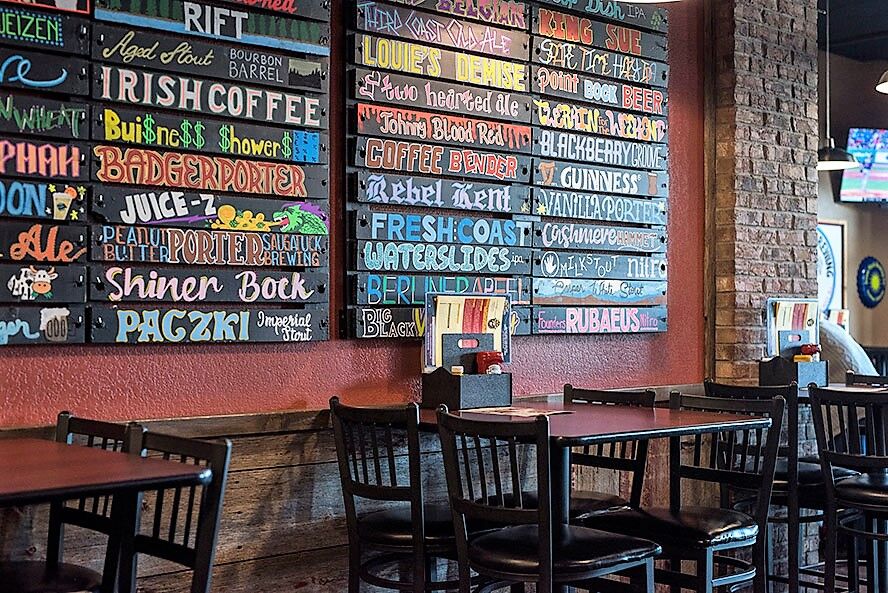 RIFT
Aged Stout BOURBON BARREL
IRISH COFFEE
Bui$ne$$ $hower$
BADGER PORTER
JUICE-Z
PEANUT BUTTER PORTER SAUGATUCK BREWING
Shiner Bock
PACZKI Imperial Stout
WHEAT
Ale
BELGIAN
THIRD COAST OLD ALE
LOUIE'S DEMISE
two hearted ale
Johnny Blood Red
COFFEE BENDER
Rebel Kent
FRESH COAST
WATERSLIDES ipa
BERLINER
BIG BLACK
IPA
KING SUE
point BOCK BEER
WERKIN FOR THE WEEKEND
BLACKBERRY GROVE
GUINNESS
VANILLA PORTER
Cashmere HAMMER
MILK STOUT nitro
Founders RUBAEUS Nitro